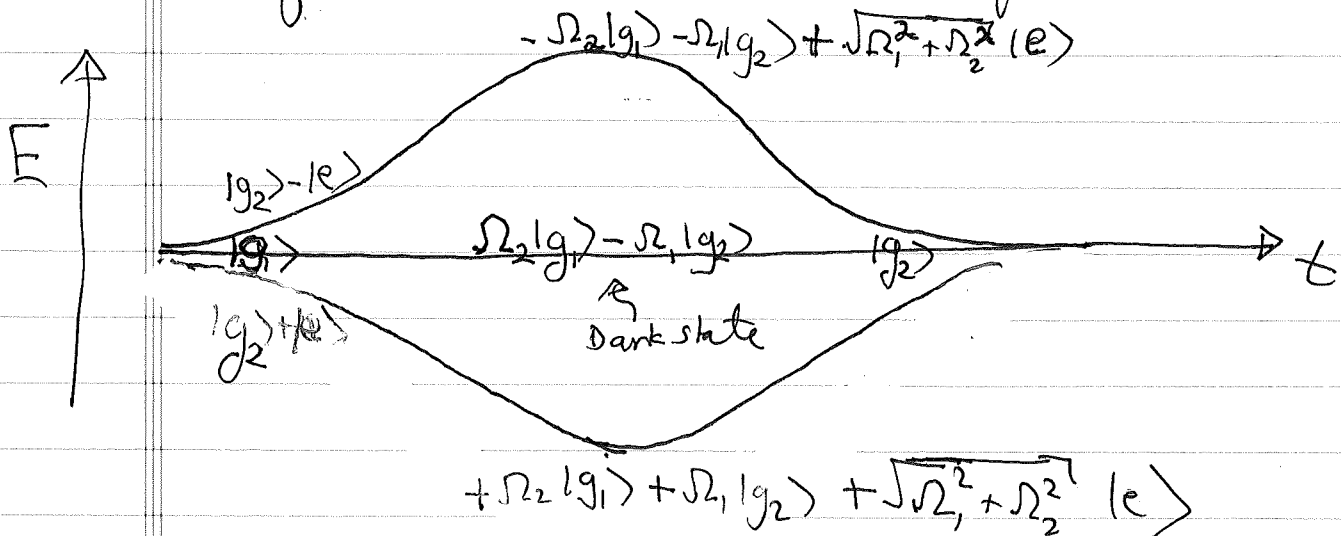 - Ω₂|g₁⟩ - Ω₁|g₂⟩ + √(Ω₁² + Ω₂²) |e⟩
E
|g₂⟩ - |e⟩
|g₁⟩
Ω₂|g₁⟩ - Ω₁|g₂⟩
|g₂⟩
t
|g₂⟩ + |e⟩
Dark state
+ Ω₂|g₁⟩ + Ω₁|g₂⟩ + √(Ω₁² + Ω₂²) |e⟩